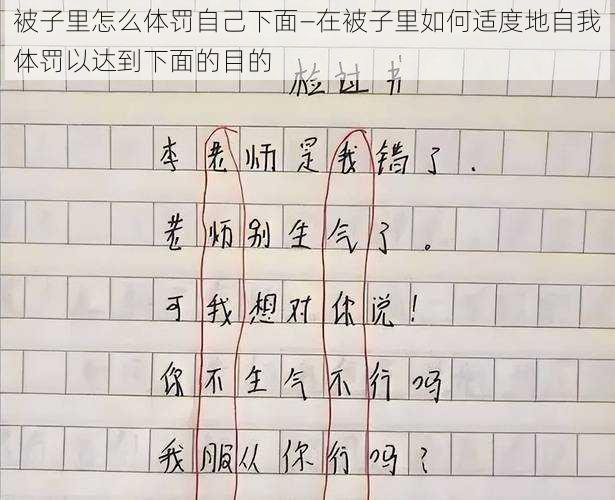 被子里怎么体罚自己下面—在被子里如何适度地自我
体罚以达到下面的目的
检过书
李老师是我错了.
老师别生气了。
可我想对你说!
你不生气不行吗
我服从你行吗?